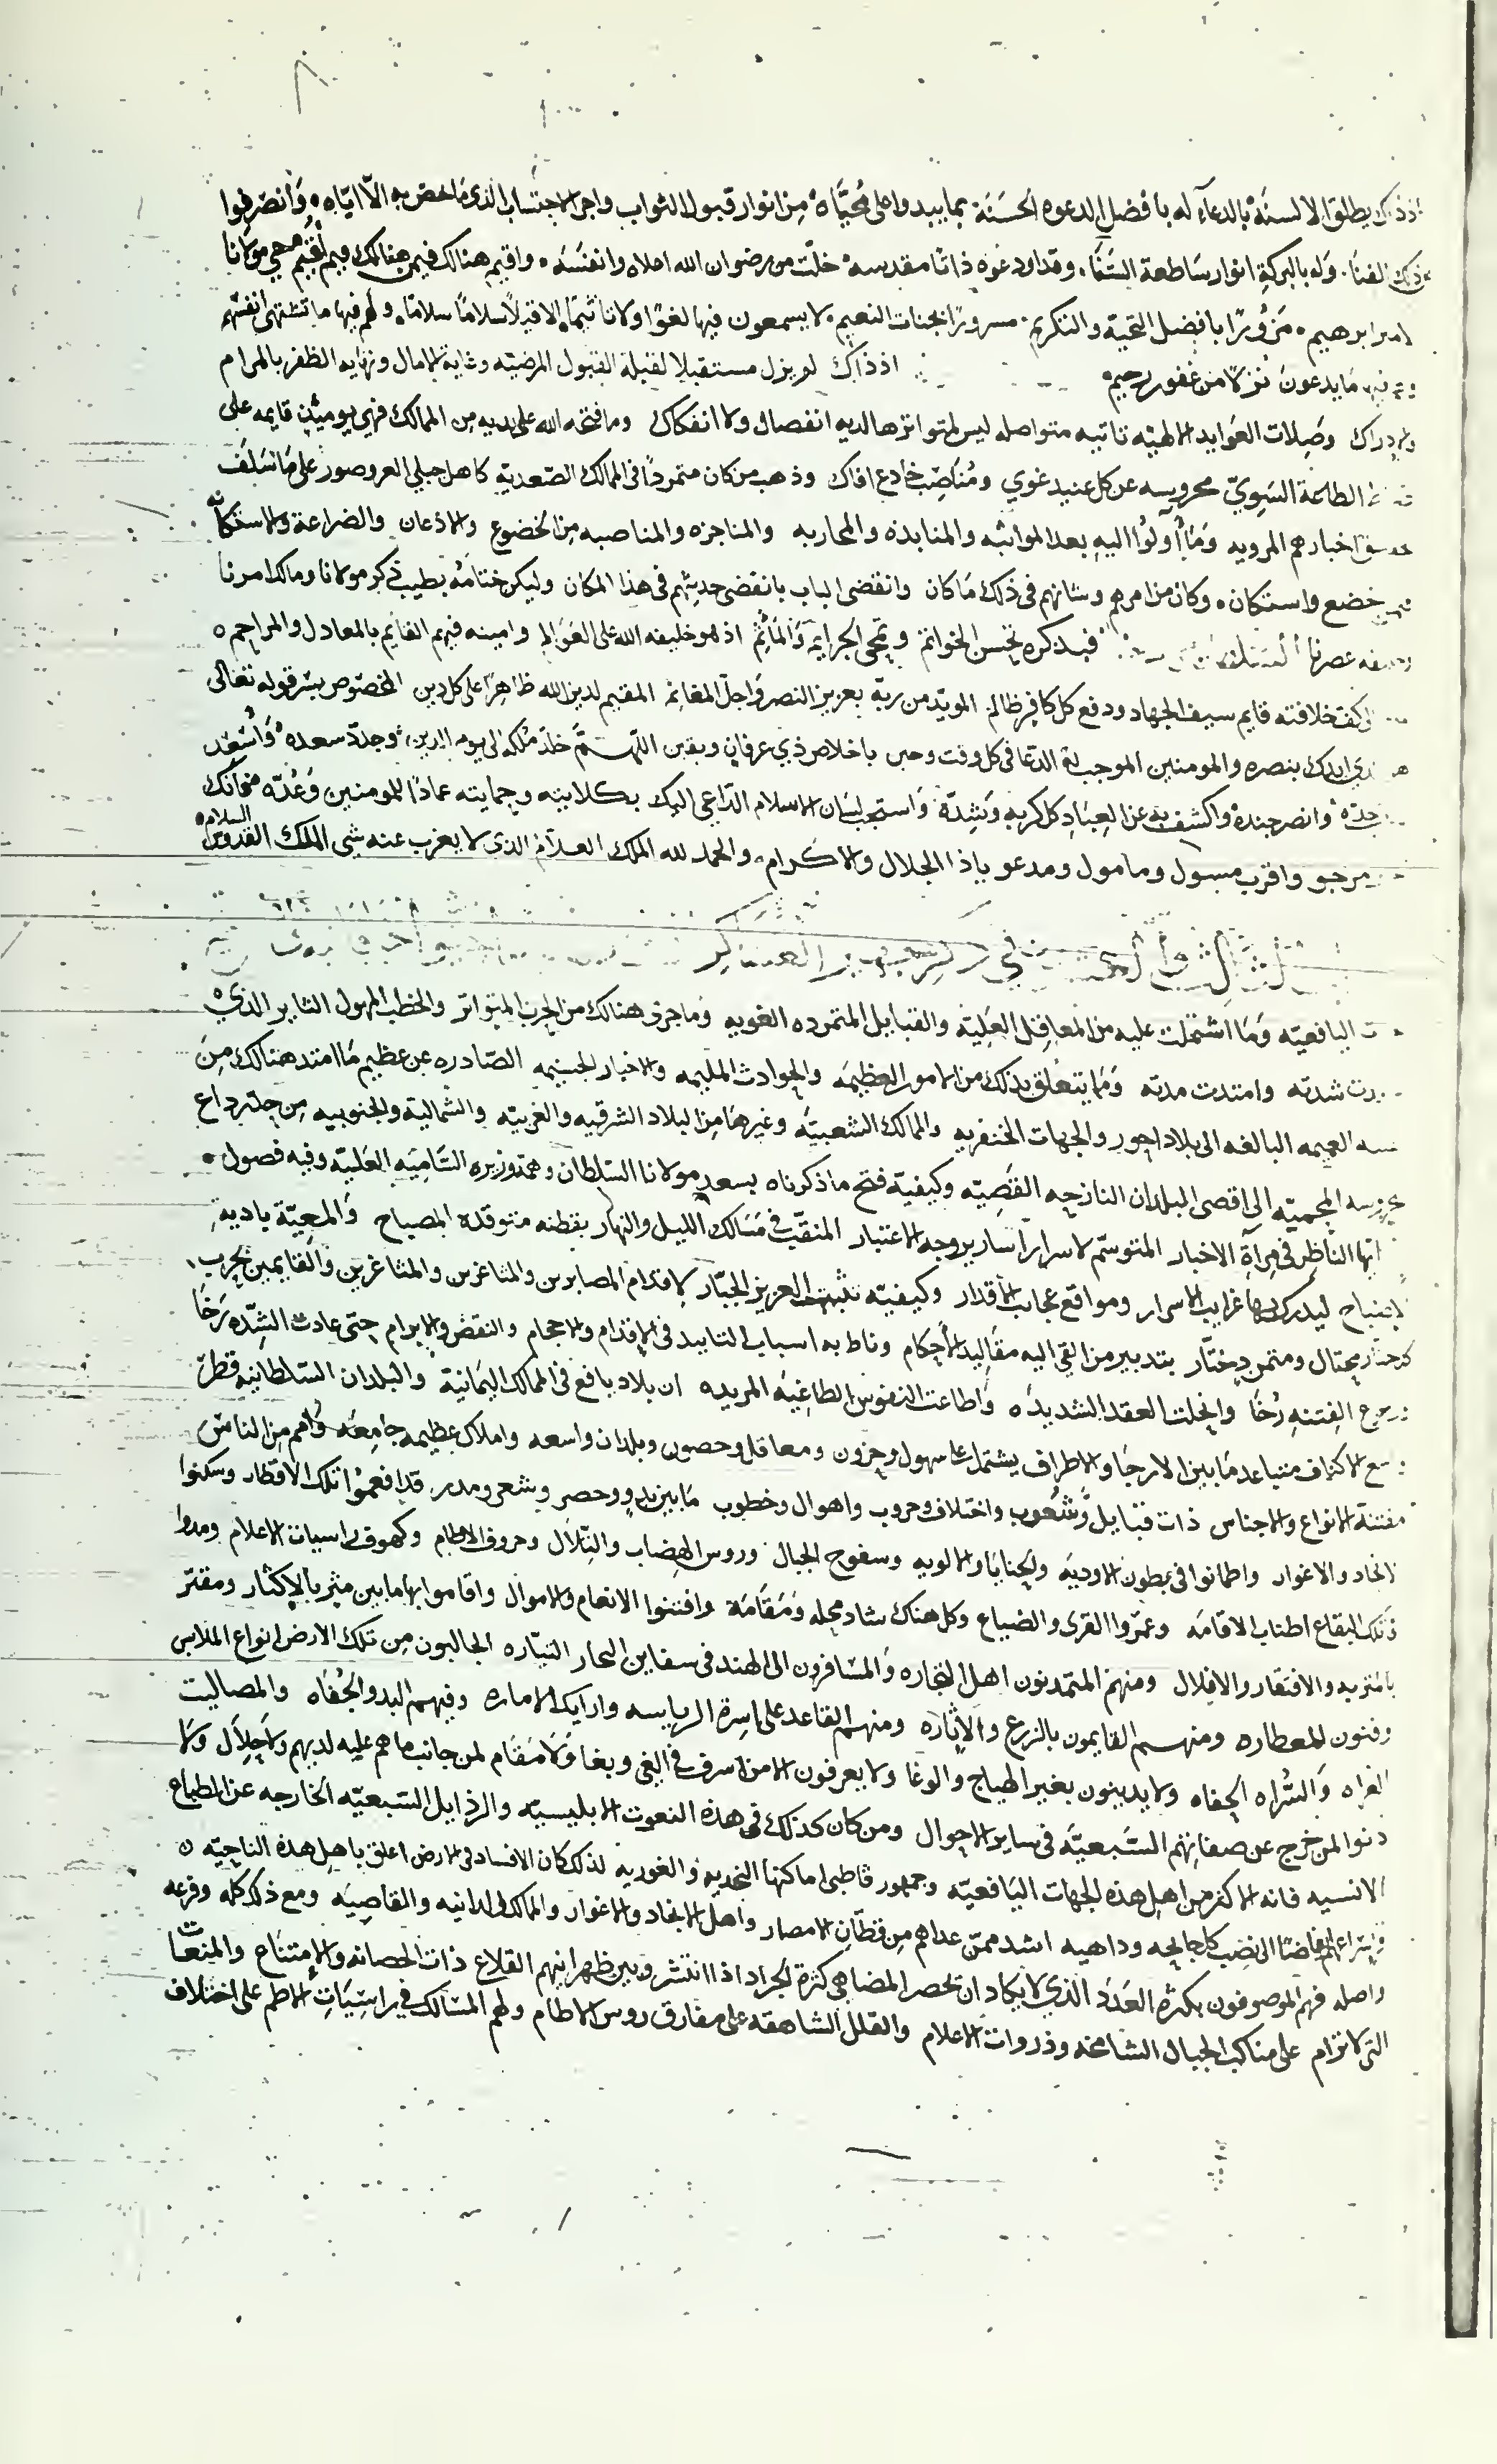 يطلق الالسنة بالدعاء له بافضل الدعوه الحسنة بما يبدوا على محياه من انوار قبول الثواب واجر الاحتساب الذي ما خص به الا اياه وانصرفوا
وله بالبركة انوار ساطعة السنا وقد اودعوه ذاتا مقدسه حلت من رضوان الله اعلاه وانفسه واقيم هنالك فيمن هنالك
ابرهيم مزورا بافضل التحية والتكريم مسرورا بجنات النعيم لا يسمعون فيها لغوا ولا تاثيما الا قيلا سلاما سلاما ولهم فيها ما تشتهي انفسهم
فيها ما يدعون نزلا من غفور رحيم اذ ذاك لم يزل مستقبلا لقبلة القبول المرضيه وغاية الامال ونهايه الظفر بالمرام
وصلات العوايد الالهيه تاتيه متواصله ليس لتواترها لديه انفصال ولا انفكاك وما فتحه الله على يديه من الممالك فهي يوميذ قايمه على
الطاعة السوي محروسه عن كل عنيد غوي ومناصب خادع افاك وذهب من كان متمردا في الممالك الصعديه كاهل جبلي العر وصور على ما سلف
اخبارهم المرويه وما أولوا اليه بعد المواثبه والمنابذه والمحاربه والمناجزه والمناصبه من الخضوع والاذعان والضراعة والاستكانه
خضع واستكان وكان من امرهم وشانهم في ذلك ما كان وانقضى الباب بانقضى حديثهم في هذا المكان وليكن ختامه بطيب ذكر مولانا ومالك امرنا
عصرنا فبذكره تحسن الخواتم وتمحى الجرايم والمأثم اذ هو خليفه الله على العوالم وامينه فيهم القايم بالمعادل والمراحم
كفت خلافته قايم سيف الجهاد ودفع كل كافر ظالم المويد من ربه بعزيز النصر واجل المغانم المقيم لدين الله ظاهرا على كل دين المخصوص بسر قوله تعالى
ايدك بنصره والمومنين الموجب له الدعا في كل وقت وحين باخلاص ذي عرفان ويقين اللهم خلد ملكه الى يوم الدين وجدد سعده واسعد
جده وانصر جنده واكشف به عن العباد كل كربه وشده واستجب لسان الاسلام الداعي اليك بكلايته وحمايته عمادا للمومنين وعده فانك
مرجو واقرب مسول ومامول ومدعو ياذا الجلال والاكرام والحمد لله الملك العلام الذي لا يعزب عنه شي الملك القدوس السلام
في ذكر تجهيز العساكر
اليافعيه وما اشتملت عليه من المعاقل العليه والقبايل المتمرده الغويه وما جرى هنالك من الحرب المتواتر والخطب المهول الثاير الذي
شدته وامتدت مدته وما يتعلق بذلك من الامور العظيمه والحوادث المليمه والاخبار الجسيمه الصادره عن عظيم ما امتد هنالك من
العميمه البالغه الى بلاد احور والجهات الخنفريه والممالك الشعبيه وغيرها من البلاد الشرقيه والغربيه والشمالية والجنوبيه من جلت رداع
المحميه الى اقصى البلدان النازحه القصيه وكيفية فتح ما ذكرناه بسعد مولانا السلطان وهمة وزيره الساميه العليه وفيه فصول
ايها الناظر في مرآة الاخبار المتوسم لاسرار اسارير وجه الاعتبار المنقب في مسالك الليل والنهار بفطنه متوقدة المصباح والمعية باديه
ليدرك بها غرايب الاسرار ومواقع عجايب الاقدار وكيفيه تثبيت العزيز الجبار لاقدام المصابرين والمثاغرين والقايمين بحرب
محتال ومتمرد ختار بتدبير من القي اليه مقاليد الاحكام وناط به اسباب التاييد في الاقدام والاحجام والنقض والابرام حتى عادت الشده رخا
الفتنه رخا وانحلت العقد الشديده واطاعت النفوس الطاغيه المريده ان بلاد يافع في الممالك اليمانية والبلدان السلطانيه قطر
الاكناف متباعد ما بين الارجا والاطراف يشتمل على سهول وحزون ومعاقل وحصون وبلدان واسعه واملاك عظيمه جامعه وامم من الناس
مفتنة الانواع والاجناس ذات قبايل وشعوب واختلاف وحروب واهوال وخطوب ما بين بدو وحصر وشعر ومدر قد افعموا تلك الاقطار وسكنوا
الانجاد والاغوار واطمانوا في بطون الاوديه والحنايا والالويه وسفوح الجبال وروس الهضاب والتلال وحروف الاطام وكهوف راسيات الاعلام ومدوا
البقاع اطناب الاقامه وعمروا القرى والضياع وكل هناك شاد محله ومقامه واقتنوا الانعام والاموال واقاموا بها ما بين مثر بالاكثار ومقتر
والافتقار والاقلال ومنهم المتمدنون اهل التجاره والمسافرون الى الهند في سفاين البحار التياره الجالبون من تلك الارض انواع الملابس
وفنون العطاره ومنهم القايمون بالزرع والاثاره ومنهم القاعد على اسرة الرياسه وارايك الاماره وفيهم البدو الجفاه والمصاليت
العراه والسراه الحفاه ولا يدينون بغير الهياج والوغا ولا يعرفون الا من اسرف في البغي وبغا ولا مقام لمن جانب ما هم عليه لديهم ولا اجلال ولا
دنوا لمن خرج عن صفاتهم السبعيه في ساير الاحوال ومن كان كذلك في هذه النعوت الابليسيه والرذايل السبعيه الخارجه عن الطباع
الانسيه فانه الاكثر من اهل هذه الجهات اليافعيه وجمهور قاطني اماكنها النجديه والغوريه لذلك كان الافساد في الارض اعلق باهل هذه الناحيه
الى نصب كل جايحه وداهيه اشد ممن عداهم من قطان الامصار واهل الانجاد والاغوار والممالك الدانيه والقاصيه ومع ذلك كله وفرعه
واصله فهم الموصوفون بكثرة العدد الذي لا يكاد ان يحصر المضاهي كثرة الجراد اذا انتشر وبين ظهرانيهم القلاع ذات الحصانه والامتناع والمنعات
التي لا ترام على مناكب الجبال الشامخه وذروات الاعلام والقلل الشاهقه على مفارق روس الاطام ولهم المسالك في راسيات الاطم على اختلاف